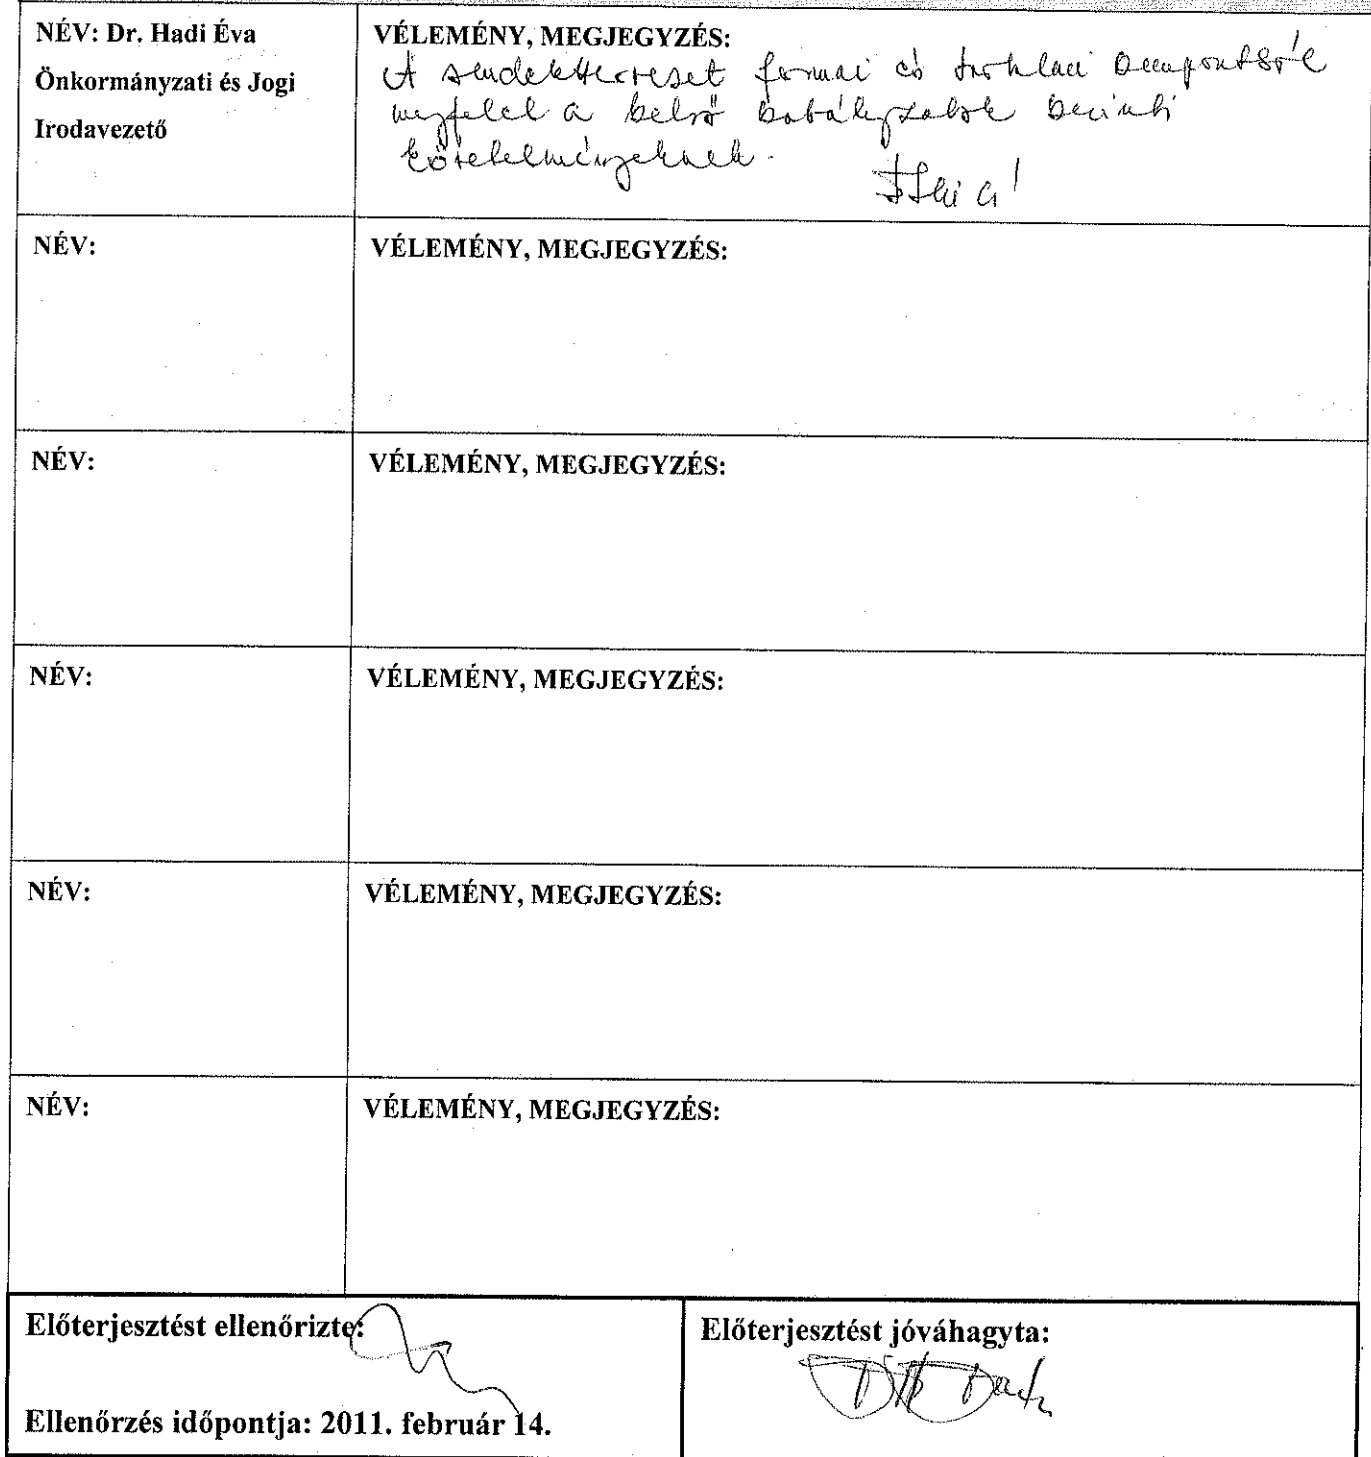 NÉV: Dr. Hadi Éva
Önkormányzati és Jogi
Irodavezető
VÉLEMÉNY, MEGJEGYZÉS:
A formai és tartalmi szempontból
megfelel a belső szabályzatok szerinti
követelményeknek.
NÉV:
VÉLEMÉNY, MEGJEGYZÉS:
NÉV:
VÉLEMÉNY, MEGJEGYZÉS:
NÉV:
VÉLEMÉNY, MEGJEGYZÉS:
NÉV:
VÉLEMÉNY, MEGJEGYZÉS:
NÉV:
VÉLEMÉNY, MEGJEGYZÉS:
Előterjesztést ellenőrizte:
Ellenőrzés időpontja: 2011. február 14.
Előterjesztést jóváhagyta: